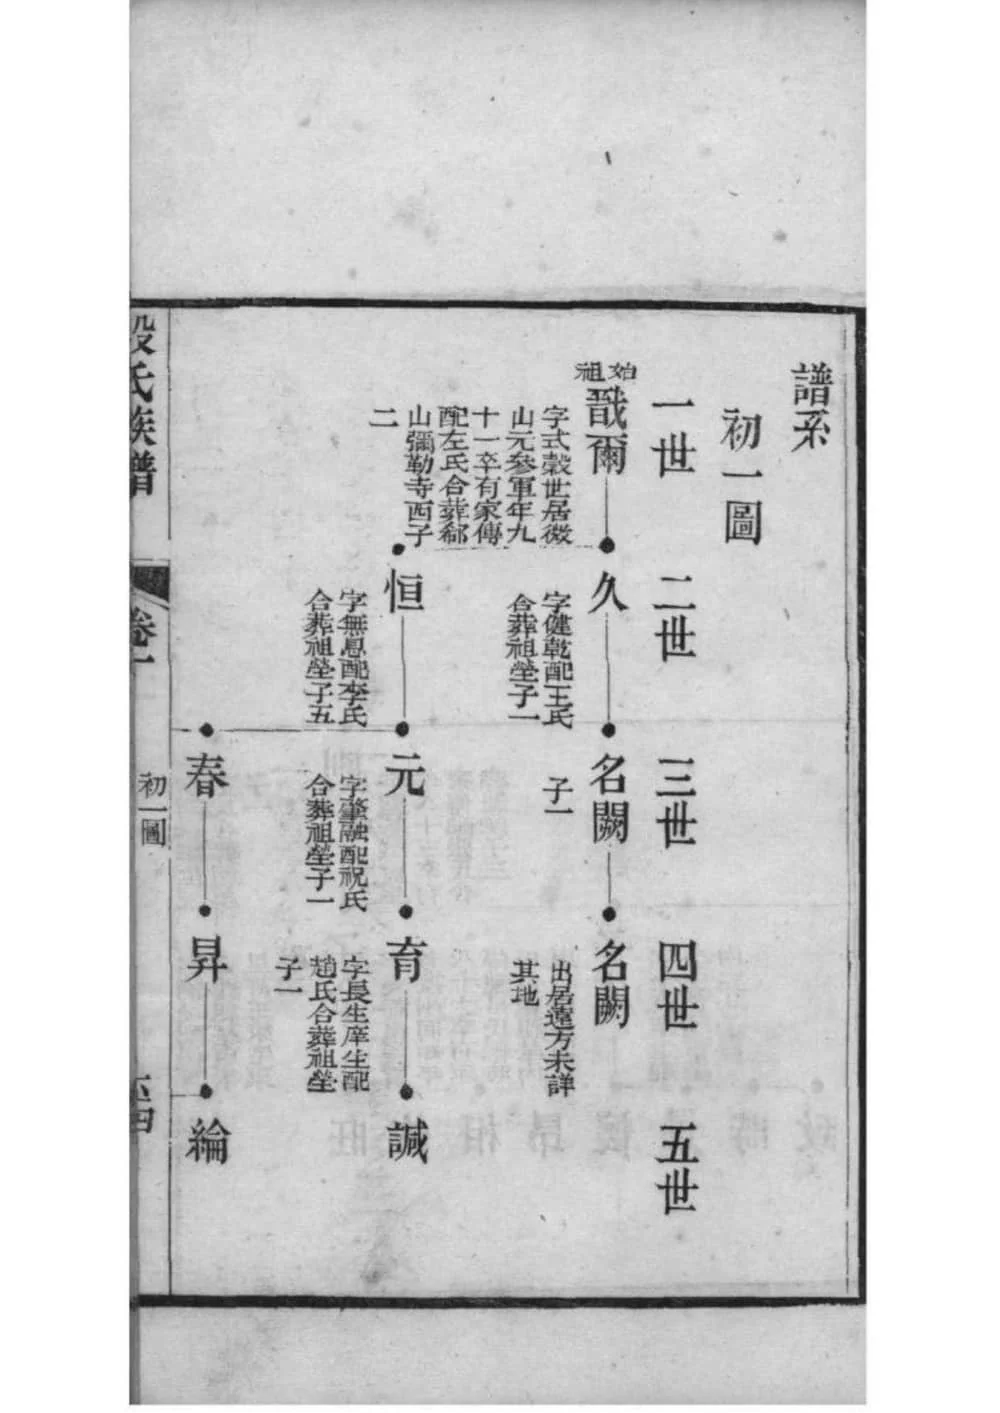 譜系
初一圖
一世
二世
三世
四世
五世
始祖
戩爾
字式穀世居微
山元參軍年九
十一卒有家傳
配左氏合葬郗
山彌勒寺西子
二
久
字健乾配王氏
合葬祖塋子一
名闕
子一
名闕
出居遠方未詳
其地
恒
字無息配李氏
合葬祖塋子五
元
字肇融配祝氏
合葬祖塋子一
育
字長生庠生配
趙氏合葬祖塋
子一
諴
春
昇
綸
殷氏族譜
卷一
初一圖